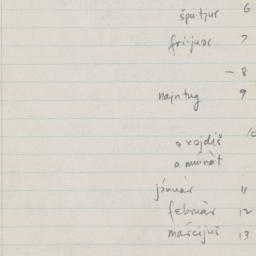 špu·tjur 6
fri·juor 7
– 8
najn tug 9
a xojdiš 10
a mu·nát
jánuár 11
február 12
március 13